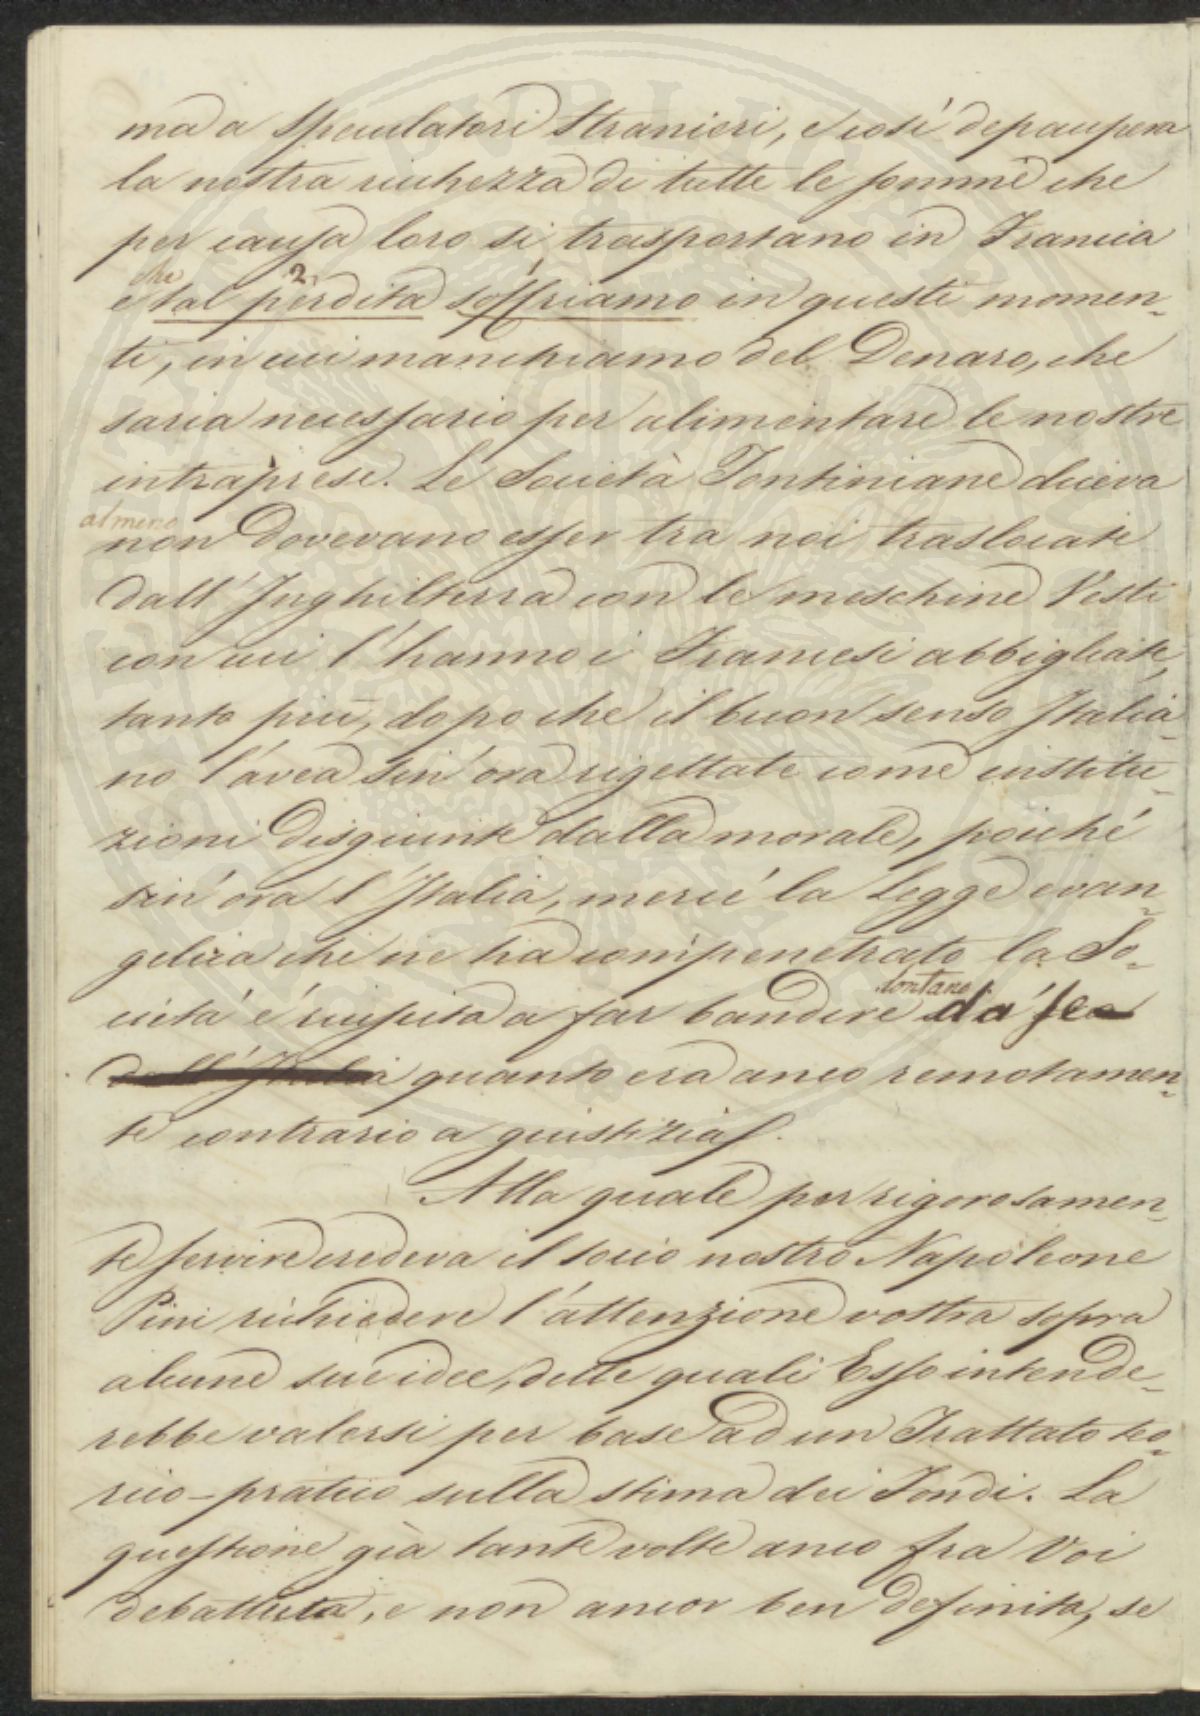 ma a Speculatori Stranieri, e così depaupera
la nostra richezza di tutte le somme che
per causa loro si trasportano in Francia
che 2.
e tal perdita soffriamo in questi momen-
ti, in cui manchiamo del Denaro, che
saria necessario per alimentare le nostre
intraprese. Le Società Tontiniane diceva
almeno
non dovevano esser tra noi traslocate
dall'Inghilterra con le meschine Vesti
con cui l'hanno i Francesi abbigliate,
tanto più, dopo che il buon senso Italia-
no l'avea sin'ora rigettate come institu-
zioni disgiunte dalla morale, poiché
sin'ora l'Italia, mercé la Legge evan-
gelica che ne ha compenetrato la So-
cietà é riuscita a far bandire
lontano da sea
dall'Italia quanto era anco remotamen-
te contrario a giustizia.
Alla quale per rigorosamen-
te servire credeva il socio nostro Napoleone
Pini richiedere l'attenzione vostra sopra
alcune sue idee, delle quali Esso intende-
rebbe valersi per base ad un Trattato teo-
rico-pratico sulla stima dei Fondi. La
questione già tante volte anco fra Voi
debattuta, e non ancor ben definita, se